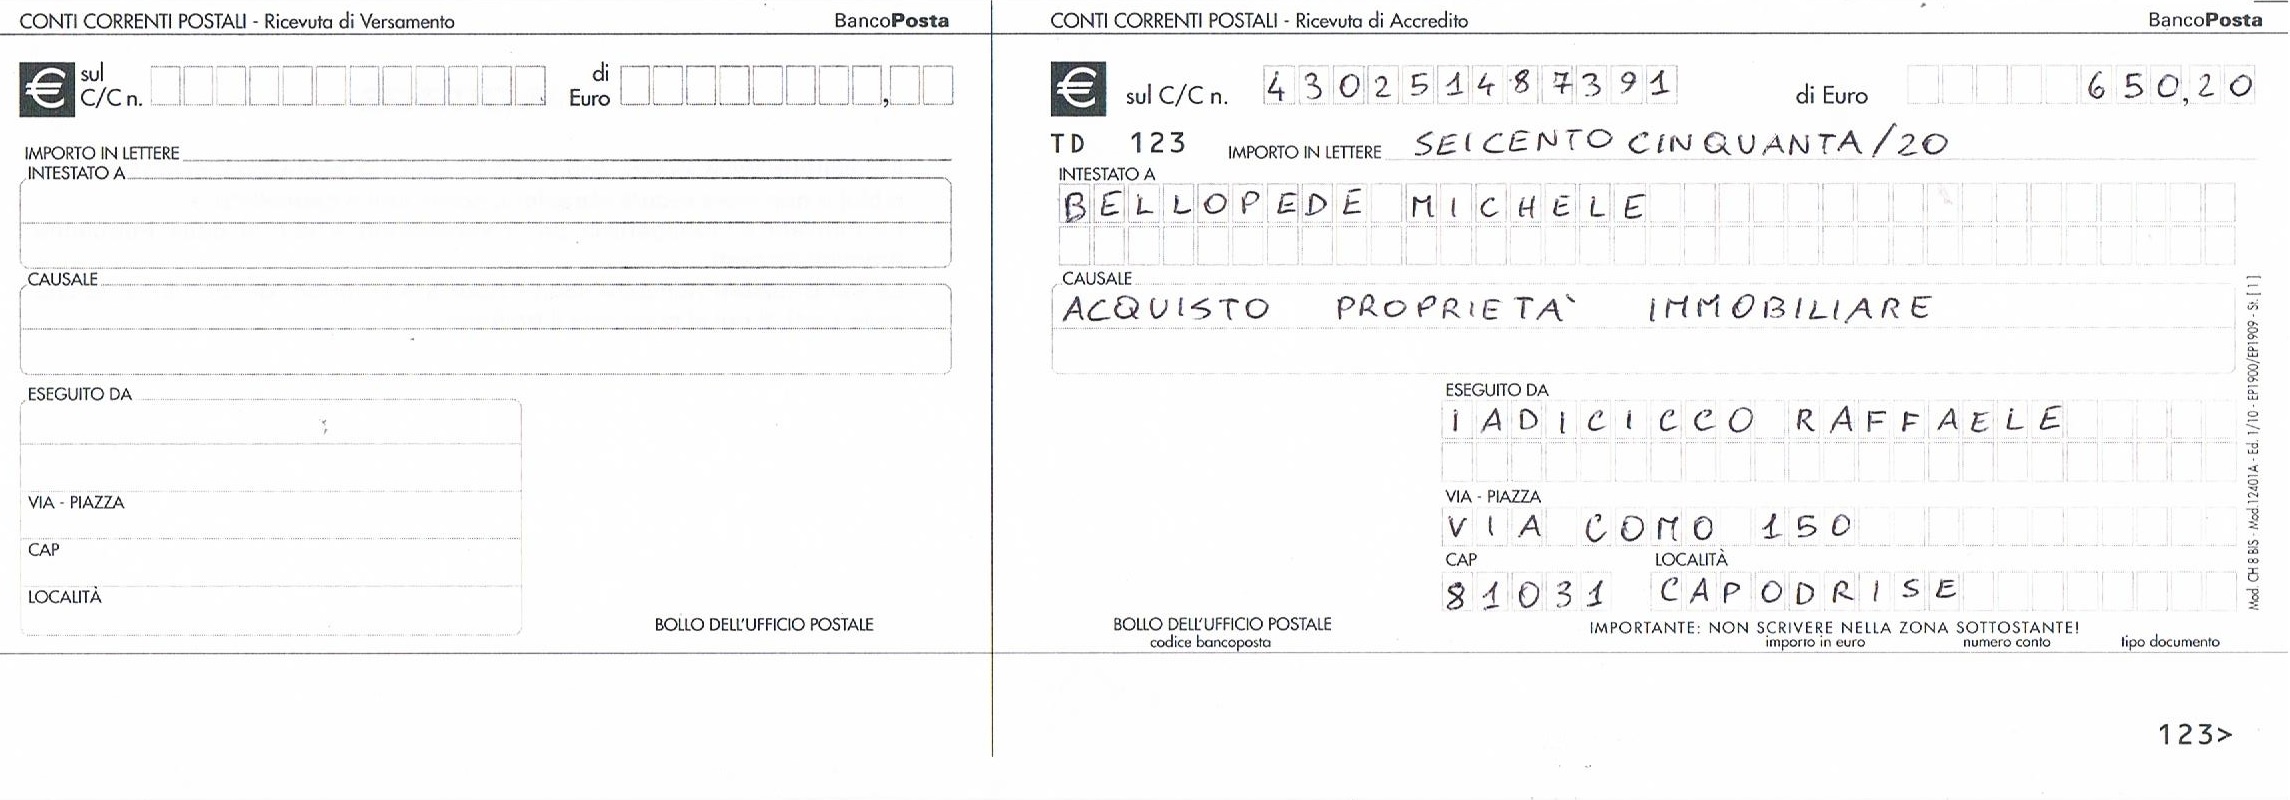 CONTI CORRENTI POSTALI - Ricevuta di Versamento BancoPosta
€ sul C/C n. di Euro ,
IMPORTO IN LETTERE
INTESTATO A
CAUSALE
ESEGUITO DA
VIA - PIAZZA
CAP
LOCALITÀ
BOLLO DELL'UFFICIO POSTALE
CONTI CORRENTI POSTALI - Ricevuta di Accredito BancoPosta
€ sul C/C n. 430251487391 di Euro 650,20
TD 123 IMPORTO IN LETTERE SEICENTO CINQUANTA/20
INTESTATO A
BELLOPEDE MICHELE
CAUSALE
ACQUISTO PROPRIETA` IMMOBILIARE
ESEGUITO DA
IADICICCO RAFFAELE
VIA - PIAZZA
VIA COMO 150
CAP LOCALITÀ
81031 CAPODRISE
BOLLO DELL'UFFICIO POSTALE
codice bancoposta
IMPORTANTE: NON SCRIVERE NELLA ZONA SOTTOSTANTE!
importo in euro numero conto tipo documento
Mod. CH 8 BIS - Mod.12401A - Ed. 1/10 - EP1900/EP1909 - St. [1]
123>